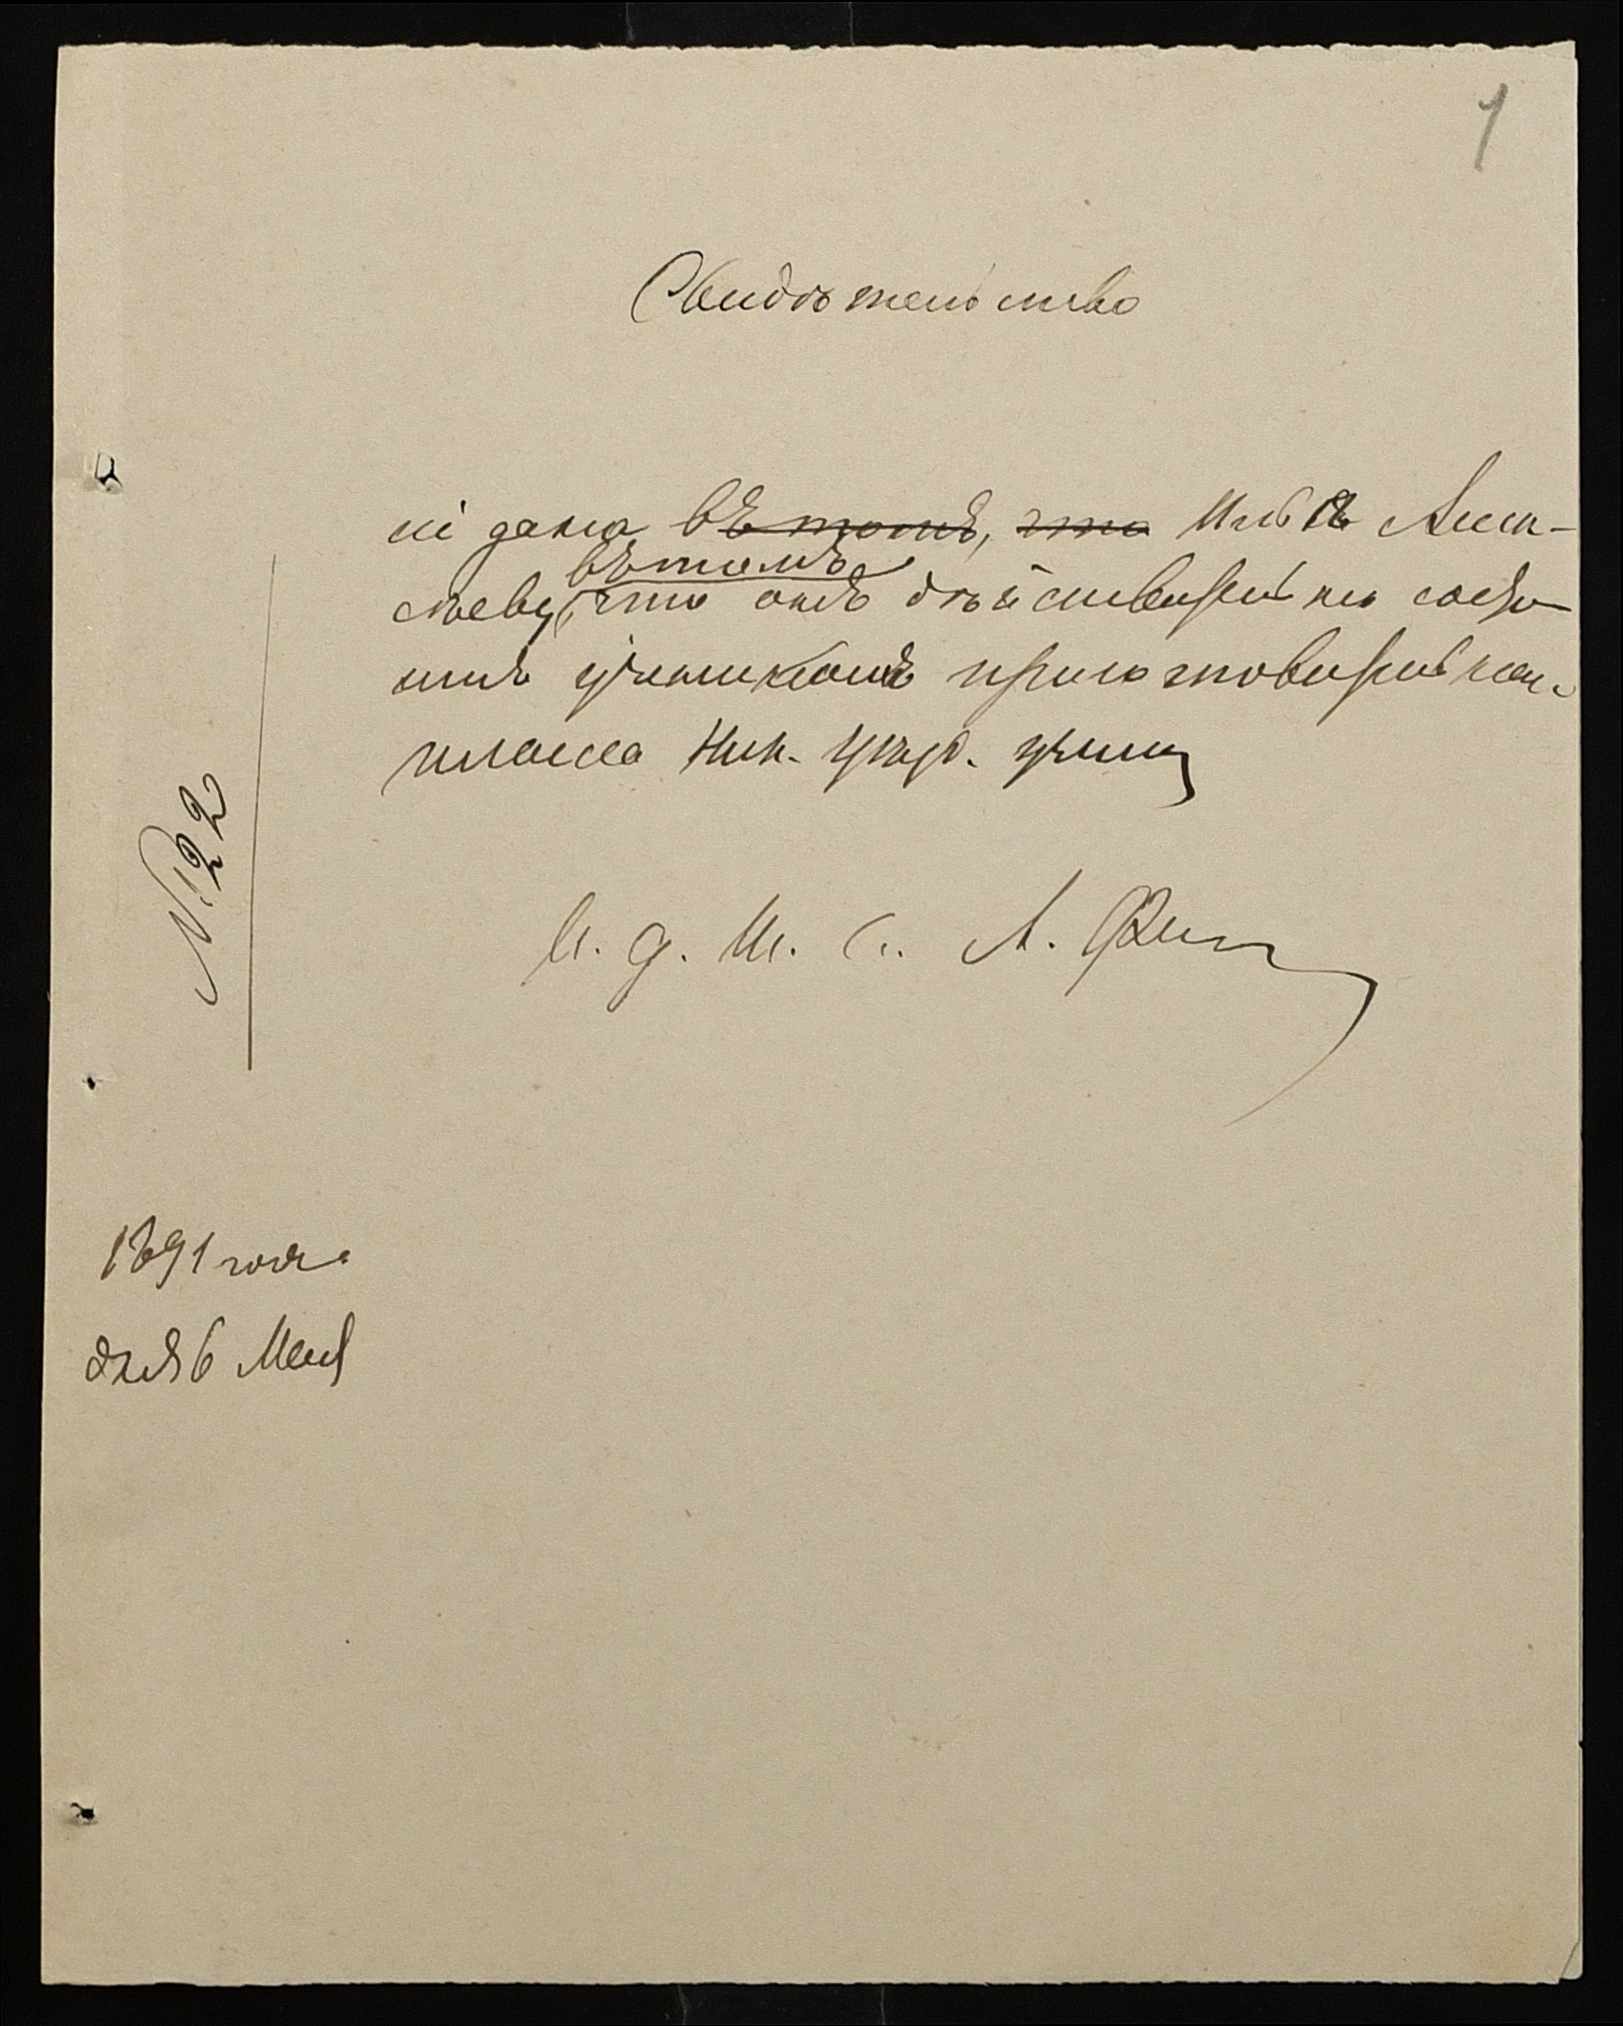 1
Свидѣтельство
сіе дано въ томъ, что Ильѣ Алек-
въ томъ
сѣеву, что онъ дѣйствительно состо-
итъ ученикомъ приготовительн.
класса Ник. училищ
И. д. И. С. А.
№ 22
1891 года
дня 6 Мая